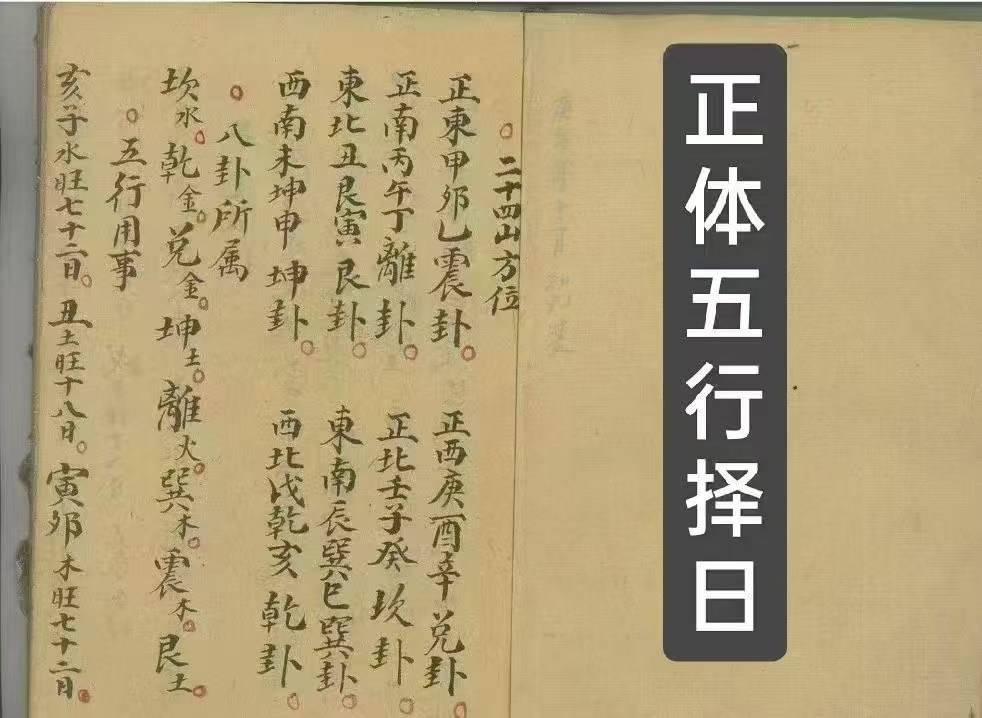 正体五行择日
。二十四山方位
正東甲卯乙震卦。 正西庚酉辛兑卦。
正南丙午丁離卦。 正北壬子癸坎卦。
東北丑艮寅艮卦。 東南辰巽巳巽卦。
西南未坤申坤卦。 西北戌乾亥乾卦。
。八卦所属
坎水。乾金。兑金。坤土。離火。巽木。震木。艮土。
。五行用事
亥子水旺七十二日。丑土旺十八日。寅卯木旺七十二日。